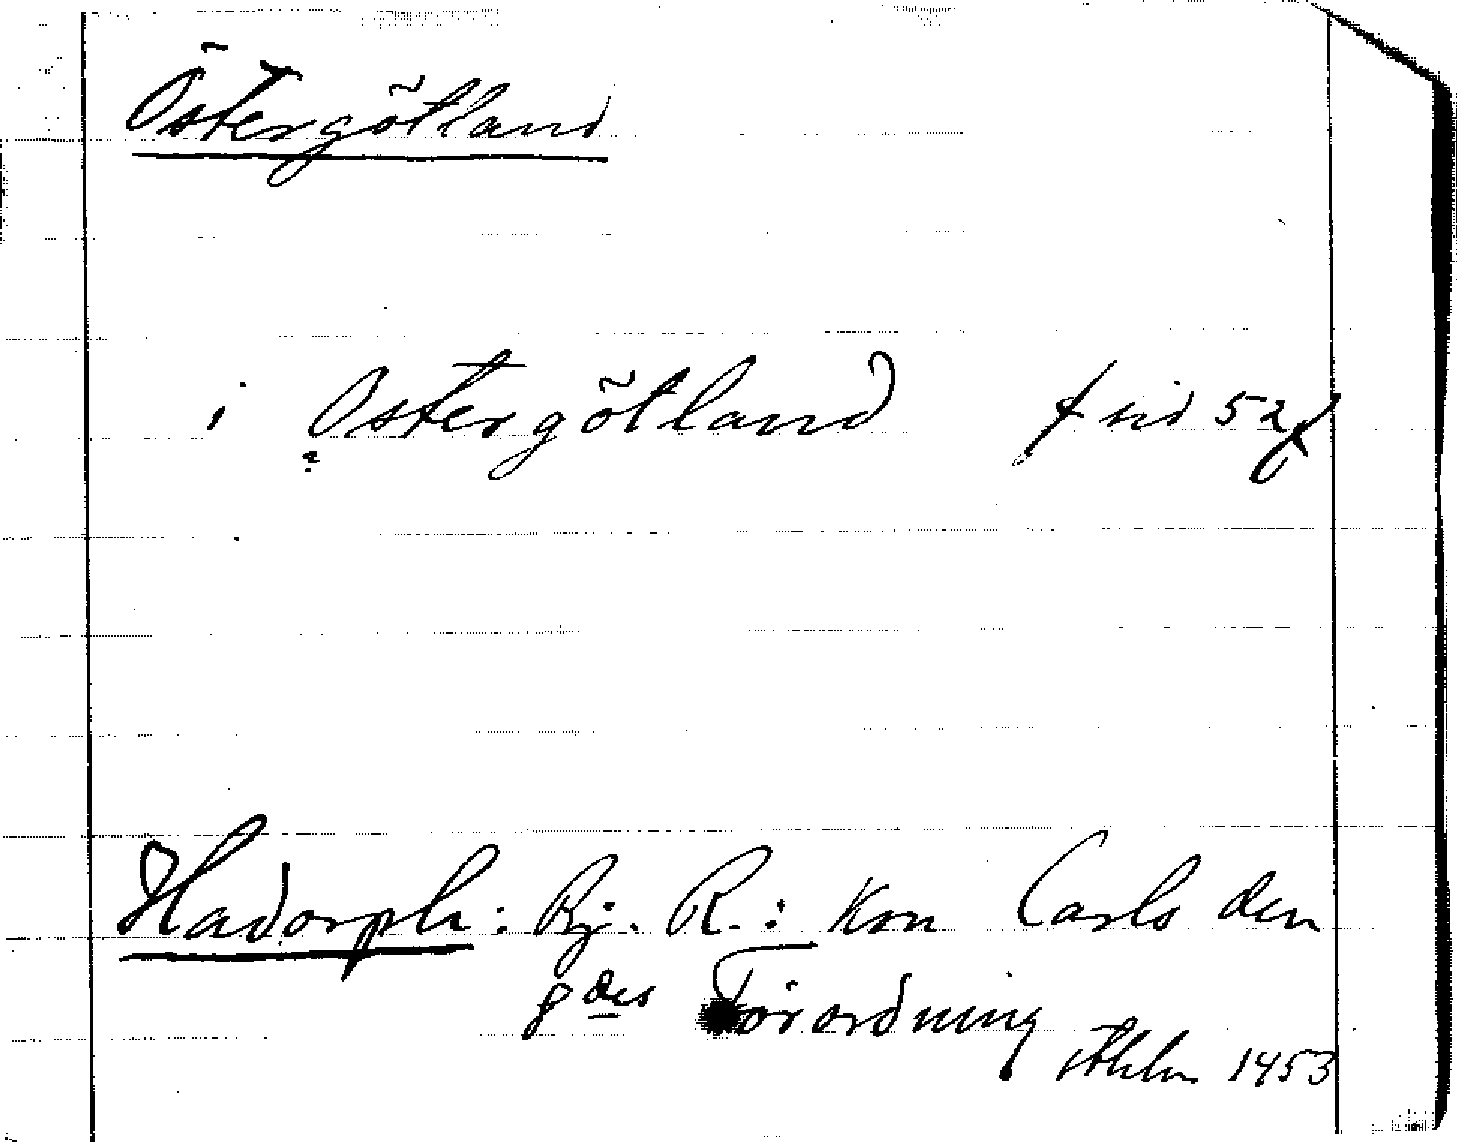 Östergötland
i Östergötland sid 52
Hadorph: Bj. R.: Kon Carls den
8des Förordning
Sthlm 1453